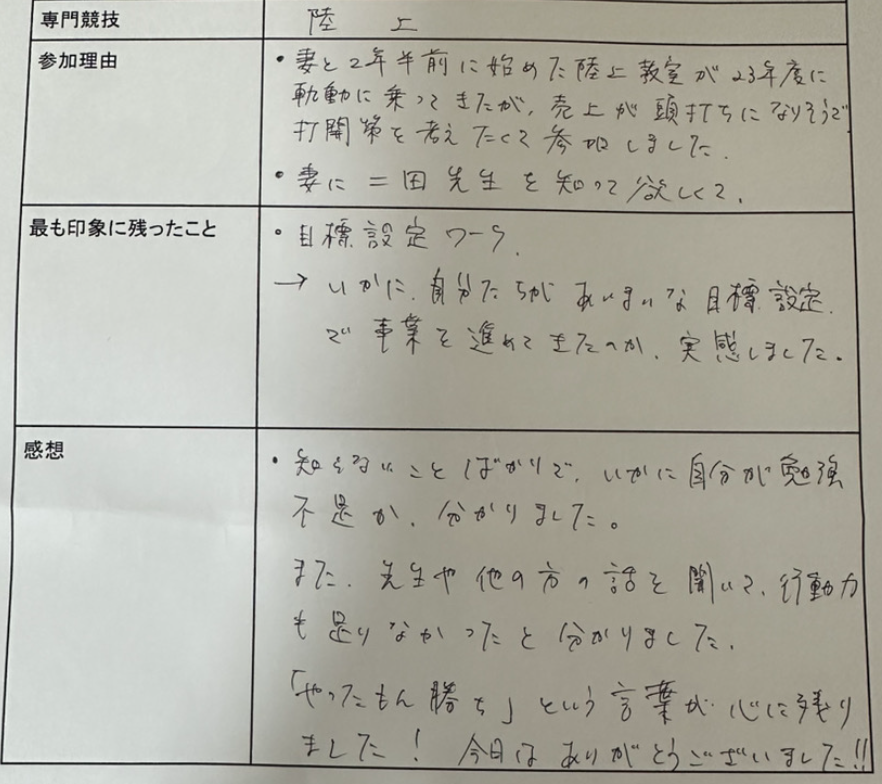 専門競技
陸上
参加理由
・妻と2年半前に始めた陸上教室が23年度に
軌動に乗ってきたが、売上が頭打ちになりそうで
打開策を考えたくて参加しました。
・妻に二田先生を知って欲しくて、
最も印象に残ったこと
・目標設定ワーク、
→ いかに、自分たちがあいまいな目標設定、
で事業を進めてきたのか、実感しました。
感想
・知らないことばかりで、いかに自分が勉強
不足か、分かりました。
また、先生や他の方の話を聞いて、行動力
も足りなかったと分かりました、
「やったもん勝ち」という言葉が心に残り
ました！ 今日はありがとうございました!!